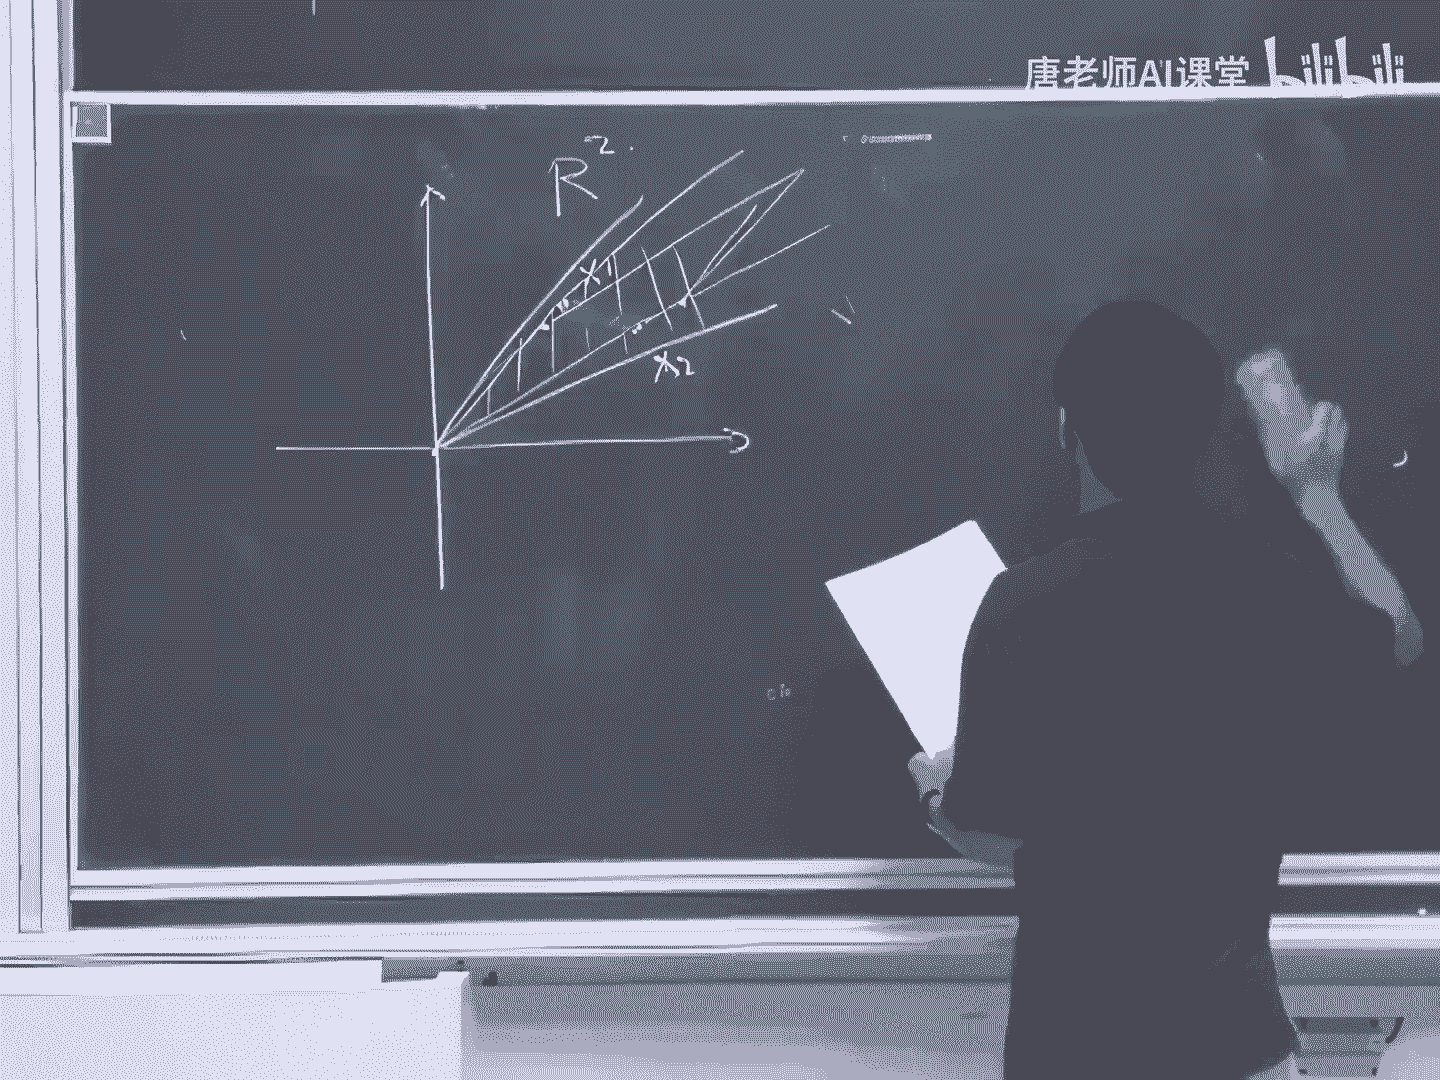 唐老师AI课堂 bilibili
R²
X₁
X₂